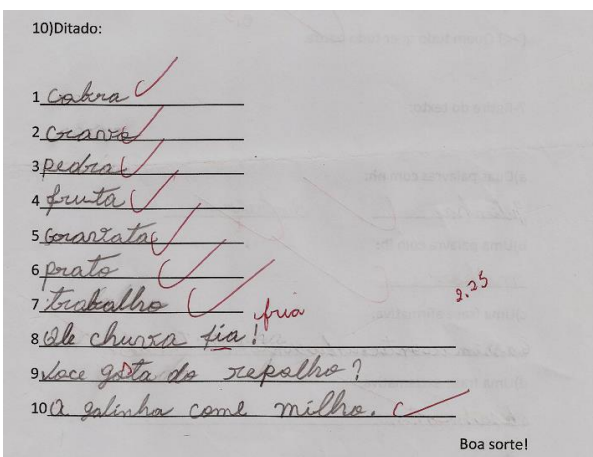 10)Ditado:
1 cabra
2 cravo
3 pedra
4 fruta
5 gravata
6 prato
7 trabalho
2.25
fria
8 Qe chuva fia!
9 Voce gota do repolho?
10 A galinha come milho.
Boa sorte!